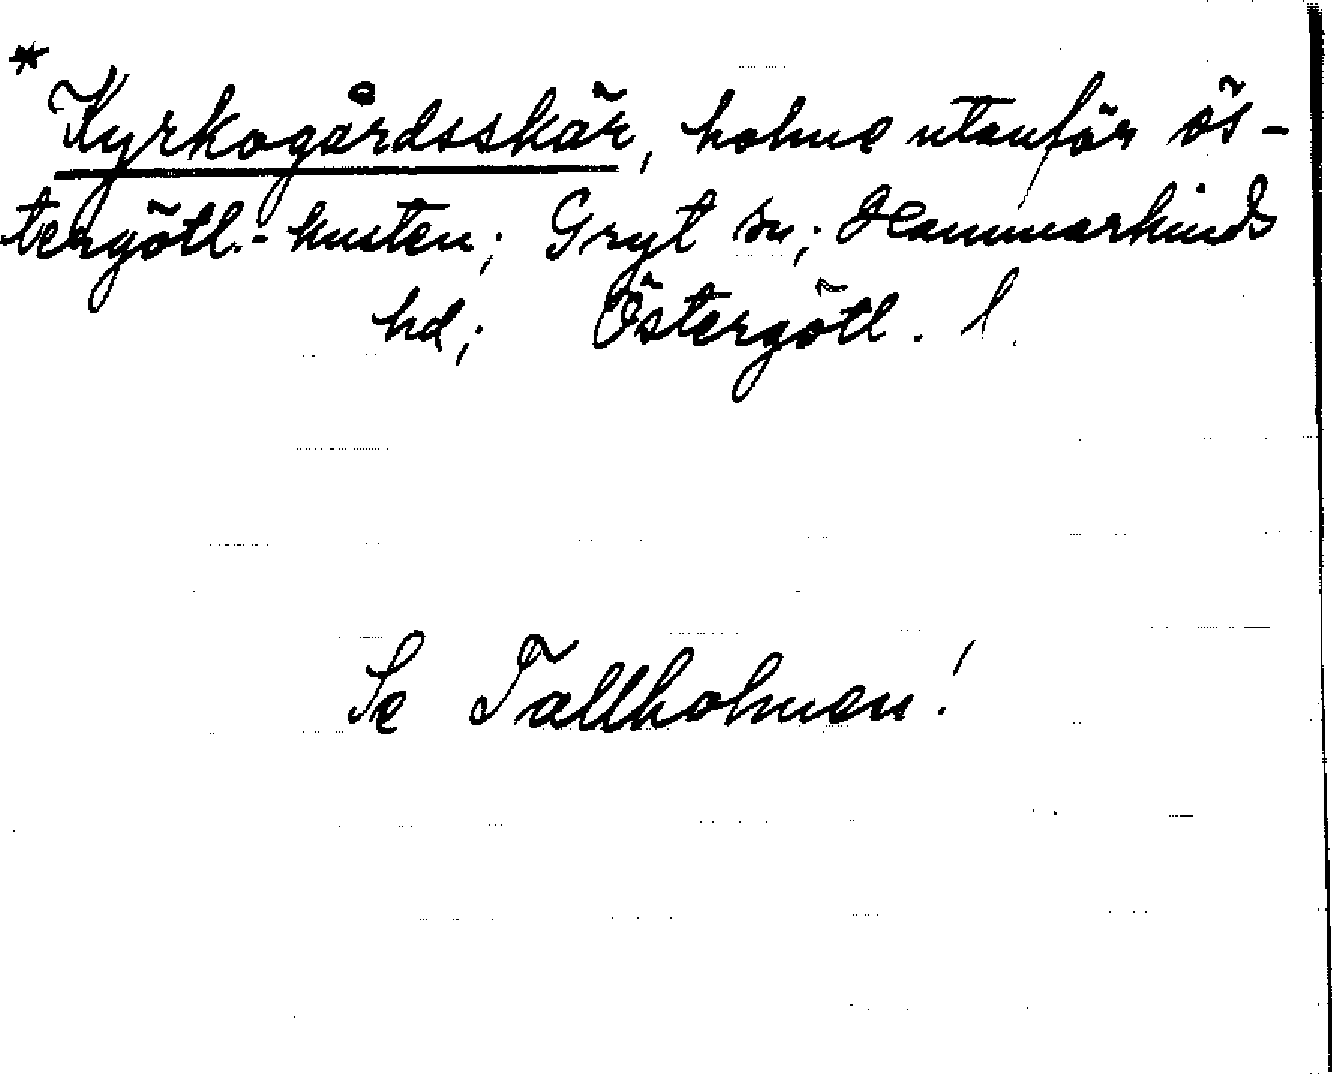 *
Kyrkogårdsskär, holme utanför ös-
tergötl.-kusten; Gryt sn; Hammarkinds
hd; Östergötl. l.
Se Tallholmen!